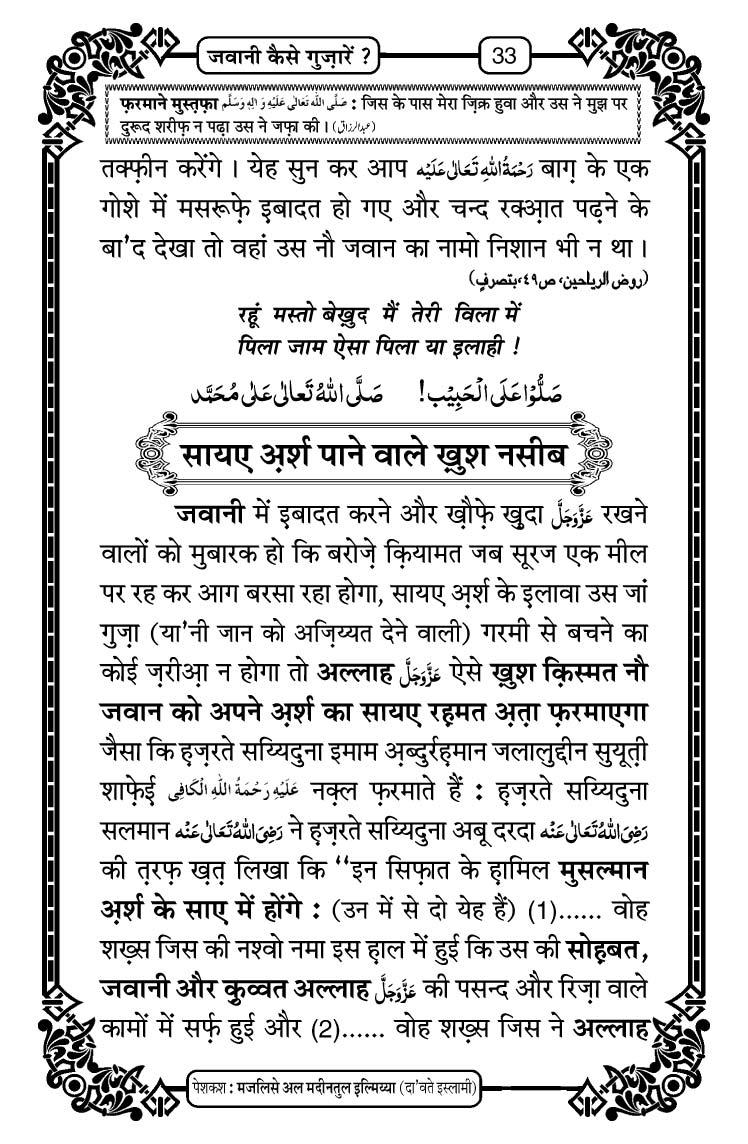 जवानी कैसे गुज़ारें ?
33
फ़रमाने मुस्त़फ़ा صَلَّى اللهُ تَعَالٰى عَلَيْهِ وَاٰلِهٖ وَسَلَّم : जिस के पास मेरा ज़िक्र हुवा और उस ने मुझ पर
दुरूद शरीफ़ न पढ़ा उस ने जफ़ा की । (عبدالرزاق)
तक्फ़ीन करेंगे । येह सुन कर आप رَحْمَةُ اللهِ تَعَالٰى عَلَيْه बाग़ के एक
गोशे में मसरूफ़े इबादत हो गए और चन्द रक्आ़त पढ़ने के
बा’द देखा तो वहां उस नौ जवान का नामो निशान भी न था ।
(روض الریاحین، ص٤٩، بتصرفٍ)
रहूं मस्तो बेख़ुद मैं तेरी विला में
पिला जाम ऐसा पिला या इलाही !
صَلُّوْا عَلَى الْحَبِيْب! صَلَّى اللهُ تَعَالٰى عَلٰى مُحَمَّد
सायए अ़र्श पाने वाले ख़ुश नसीब
जवानी में इबादत करने और ख़ौफ़े ख़ुदा عَزَّوَجَلَّ रखने
वालों को मुबारक हो कि बरोज़े क़ियामत जब सूरज एक मील
पर रह कर आग बरसा रहा होगा, सायए अ़र्श के इलावा उस जां
गुज़ा (या’नी जान को अज़िय्यत देने वाली) गरमी से बचने का
कोई ज़रीआ़ न होगा तो अल्लाह عَزَّوَجَلَّ ऐसे ख़ुश क़िस्मत नौ
जवान को अपने अ़र्श का सायए रह़मत अ़त़ा फ़रमाएगा
जैसा कि ह़ज़रते सय्यिदुना इमाम अ़ब्दुर्रह़मान जलालुद्दीन सुयूत़ी
शाफ़ेई عَلَيْهِ رَحْمَةُ اللهِ الْكَافِى नक़्ल फ़रमाते हैं : ह़ज़रते सय्यिदुना
सलमान رَضِىَ اللهُ تَعَالٰى عَنْه ने ह़ज़रते सय्यिदुना अबू दरदा رَضِىَ اللهُ تَعَالٰى عَنْه
की त़रफ़ ख़त़ लिखा कि ‘‘इन सिफ़ात के ह़ामिल मुसल्मान
अ़र्श के साए में होंगे : (उन में से दो येह हैं) (1)...... वोह
शख़्स जिस की नश्वो नमा इस ह़ाल में हुई कि उस की सोह़बत,
जवानी और क़ुव्वत अल्लाह عَزَّوَجَلَّ की पसन्द और रिज़ा वाले
कामों में सर्फ़ हुई और (2)...... वोह शख़्स जिस ने अल्लाह
पेशकश : मजलिसे अल मदीनतुल इल्मिय्या (दा’वते इस्लामी)